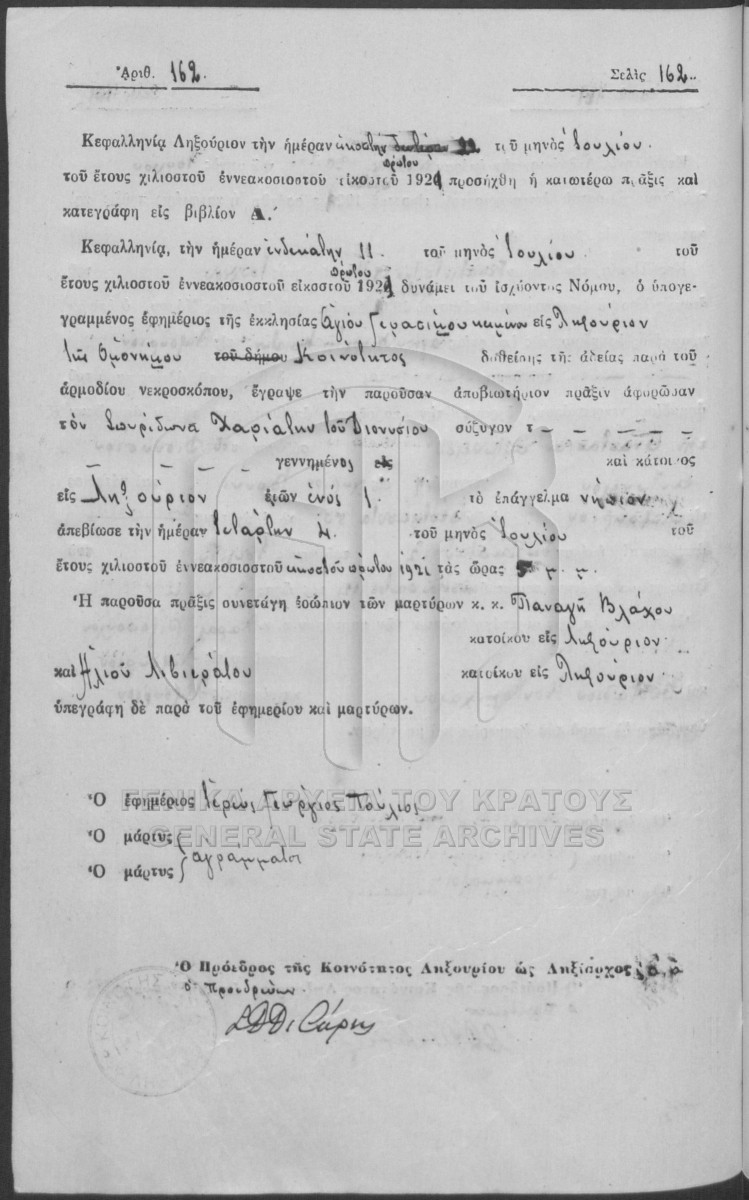 Ἀριθ. 162. Σελὶς 162.
Κεφαλληνίᾳ Ληξούριον τὴν ἡμέραν εἰκοστὴν τοῦ μηνὸς Ἰουλίου
πρώτου
τοῦ ἔτους χιλιοστοῦ ἐννεακοσιοστοῦ εἰκοστοῦ 1921 προσήχθη ἡ κατωτέρω πρᾶξις καὶ
κατεγράφη εἰς βιβλίον Α.′
Κεφαλληνίᾳ, τὴν ἡμέραν ἑνδεκάτην 11 τοῦ μηνὸς Ἰουλίου τοῦ
πρώτου
ἔτους χιλιοστοῦ ἐννεακοσιοστοῦ εἰκοστοῦ 1921 δυνάμει τοῦ ἰσχύοντος Νόμου, ὁ ὑπογε-
γραμμένος ἐφημέριος τῆς ἐκκλησίας Ἁγίου Γερασίμου εἰς Ληξούριον
τῆς ὁμωνύμου τοῦ δήμου Κοινότητος δοθείσης τῆς ἀδείας παρὰ τοῦ
ἁρμοδίου νεκροσκόπου, ἔγραψε τὴν παροῦσαν ἀποβιωτήριον πρᾶξιν ἀφορῶσαν
τὸν Σπυρίδωνα Χαριάτην τοῦ Διονυσίου σύζυγον τ – – – – –
– – – – γεννημένος εἰς καὶ κάτοικος
εἰς Ληξούριον ἐτῶν ἑνός 1. τὸ ἐπάγγελμα νήπιον
ἀπεβίωσε τὴν ἡμέραν τετάρτην 4. τοῦ μηνὸς Ἰουλίου τοῦ
ἔτους χιλιοστοῦ ἐννεακοσιοστοῦ εἰκοστοῦ πρώτου 1921 τὰς ὥρας 5 μ. μ.
Ἡ παροῦσα πρᾶξις συνετάγη ἐνώπιον τῶν μαρτύρων κ. κ. Παναγῆ Βλάχου
κατοίκου εἰς Ληξούριον
καὶ Ἠλιοῦ Λιβιεράτου κατοίκου εἰς Ληξούριον
ὑπεγράφη δὲ παρὰ τοῦ ἐφημερίου καὶ μαρτύρων.
Ὁ ἐφημέριος Ἱερεὺς Γεώργιος Πούλιος
ΓΕΝΙΚΑ ΑΡΧΕΙΑ ΤΟΥ ΚΡΑΤΟΥΣ
GENERAL STATE ARCHIVES
Ὁ μάρτυς
ἀγράμματοι
Ὁ μάρτυς
Ὁ Πρόεδρος τῆς Κοινότητος Ληξουρίου ὡς Ληξίαρχος
ὁ προεδρεύων